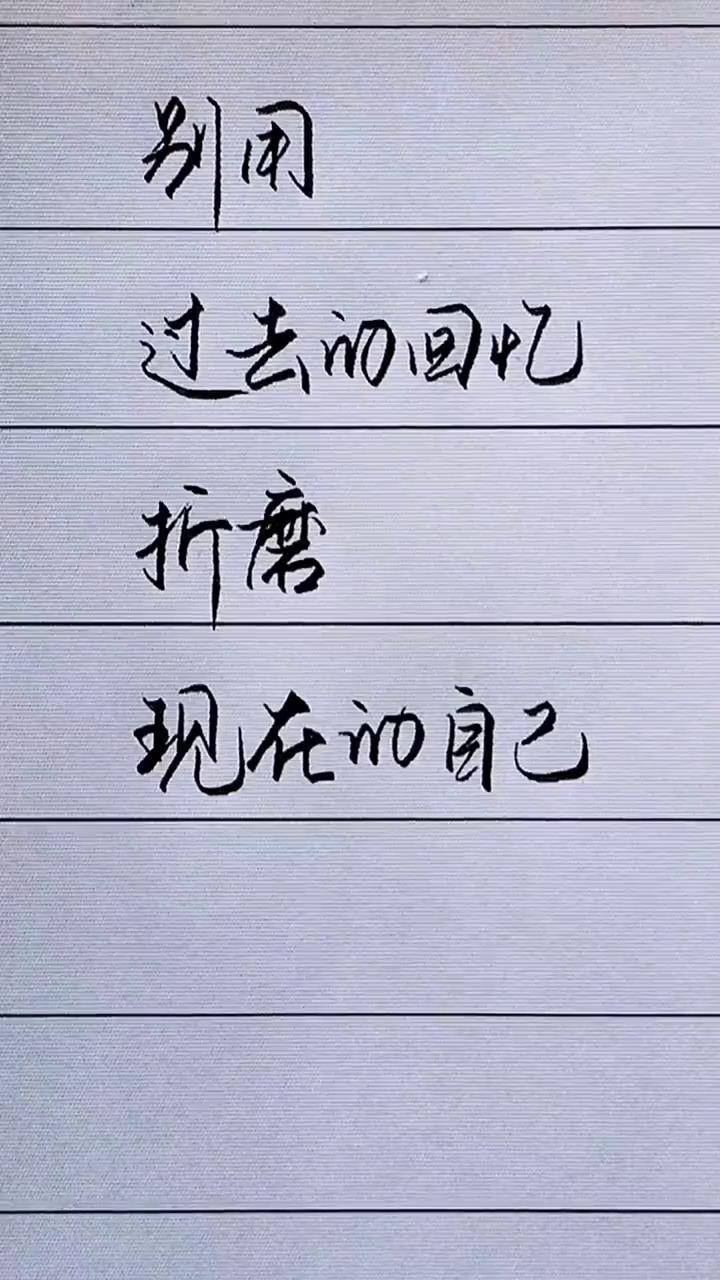 别用
过去的回忆
折磨
现在的自己